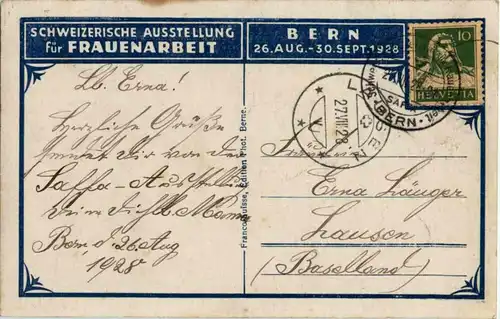 SCHWEIZERISCHE AUSSTELLUNG
für FRAUENARBEIT
BERN
26. AUG.-30. SEPT. 1928
10
HELVETIA
SAFFA
BERN
27.VIII.28
Lb. Erna!
Herzliche Grüße
sendet dir von der
Saffa-Ausstellung
Deine Mama
Bern d. 26. Aug
1928
Franco-Suisse, Edition Phot. Berne.
Erna Länger
Lausen
(Baselland)